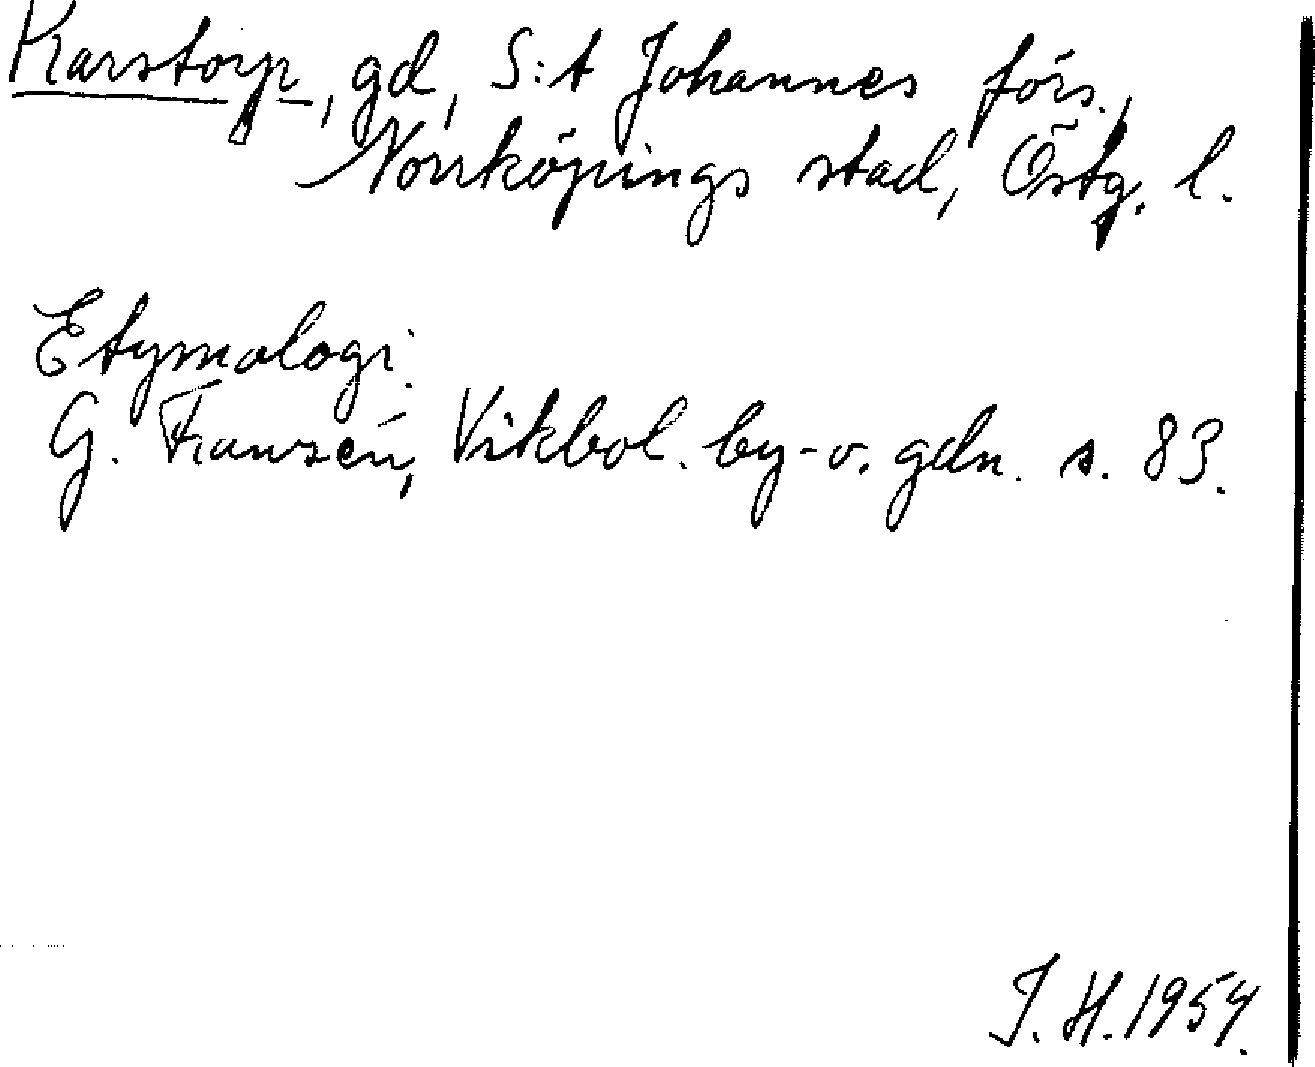 Karstorp, gd, S:t Johannes förs.,
Norrköpings stad, Östg. l.
Etymologi.
G. Franzén, Vikbol. by- o. gdn. s. 83.
J. H. 1954.